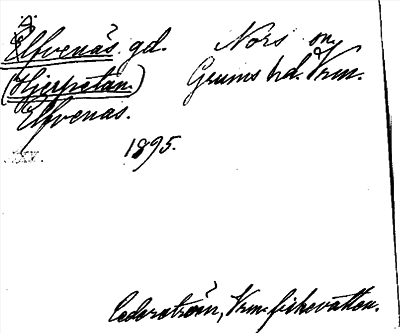 Elfvenäs gd. Nors sn,
(Hjerpetan.) Grums hd. Vrm.
Elfvenäs.
1895.
Cederström, Vrm. fiskevatten.